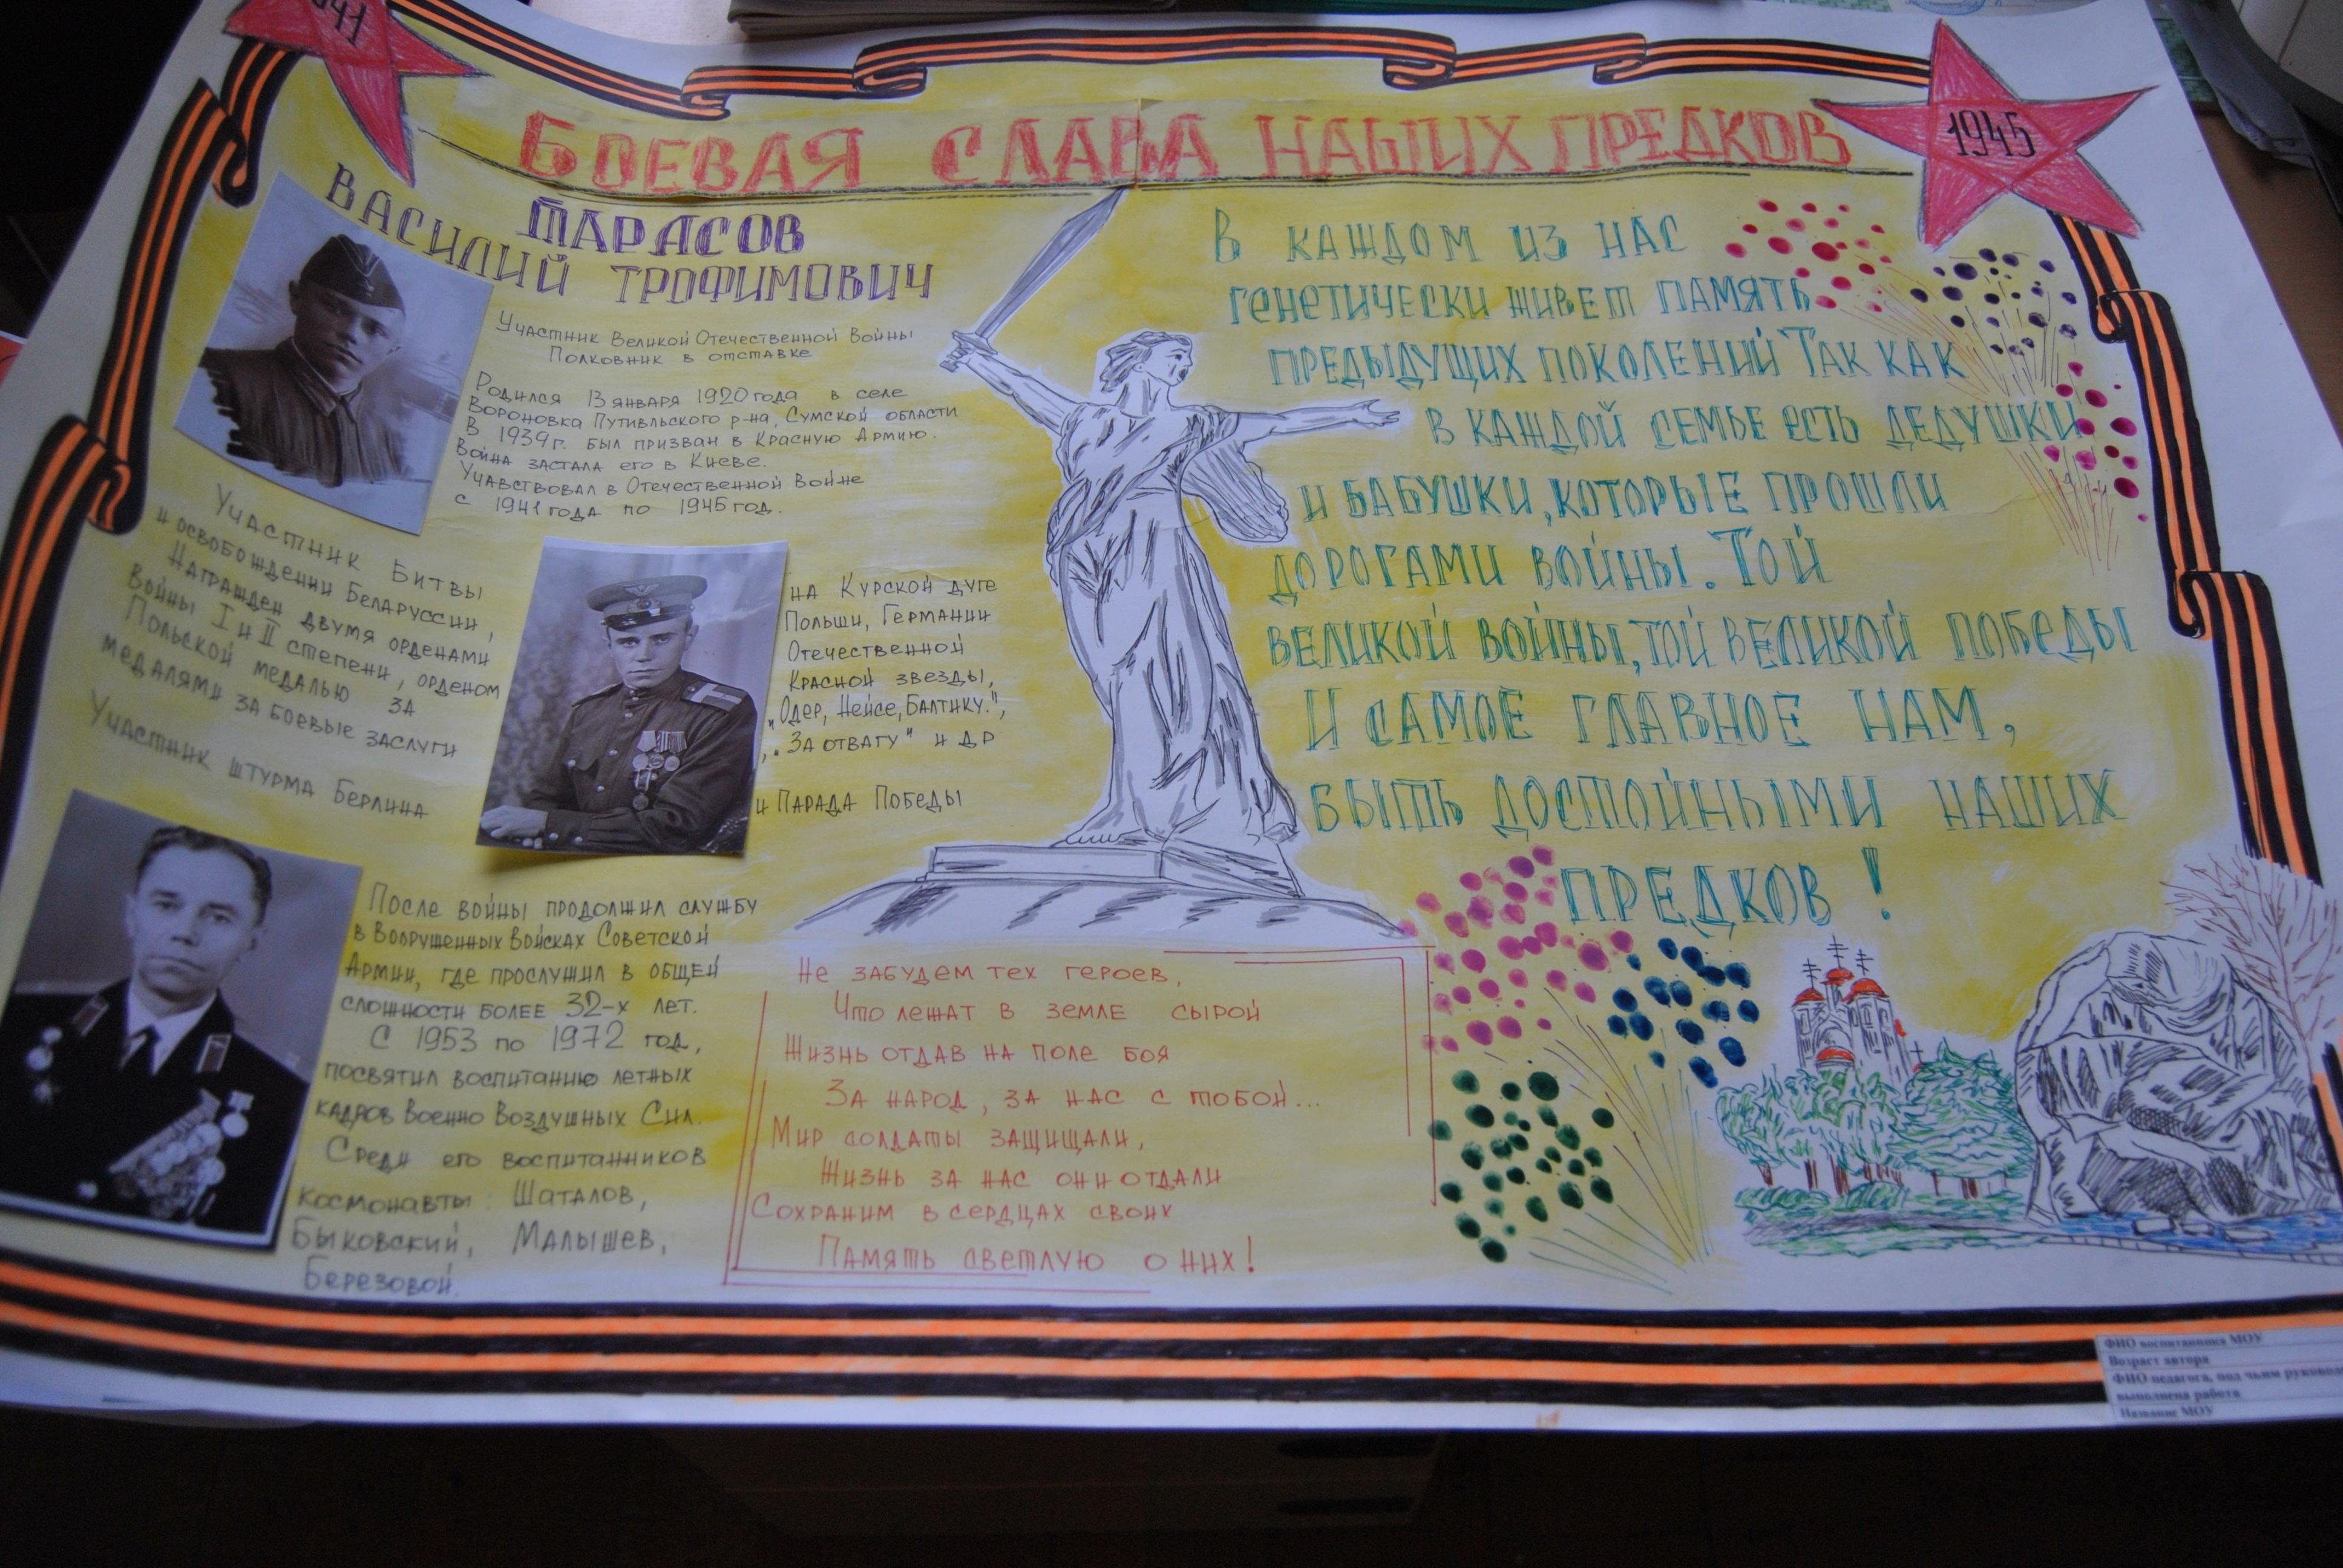 941
1945
БОЕВАЯ СЛАВА НАШИХ ПРЕДКОВ
ТАРАСОВ
ВАСИЛИЙ ТРОФИМОВИЧ
Участник Великой Отечественной Войны
Полковник в отставке
Родился 13 января 1920 года в селе
Вороновка Путивльского р-на, Сумской области
В 1939 г. был призван в Красную Армию.
Война застала его в Киеве.
Учавствовал в Отечественной Войне
с 1941 года по 1945 год.
Участник Битвы на Курской дуге
и освобождении Беларуссии, Польши, Германии
Награжден двумя орденами Отечественной
Войны I и II степени, орденом Красной звезды,
Польской медалью за „Одер, Нейсе, Балтику.",
медалями за боевые заслуги „За отвагу" и др
Участник штурма Берлина и Парада Победы
После войны продолжил службу
в Вооруженных Войсках Советской
Армии, где прослужил в общей
сложности более 32-х лет.
С 1953 по 1972 год,
посвятил воспитанию летных
кадров Военно Воздушных Сил.
Среди его воспитанников
космонавты: Шаталов,
Быковский, Малышев,
Березовой.
В КАЖДОМ ИЗ НАС
ГЕНЕТИЧЕСКИ ЖИВЕТ ПАМЯТЬ
ПРЕДЫДУЩИХ ПОКОЛЕНИЙ ТАК КАК
В КАЖДОЙ СЕМЬЕ ЕСТЬ ДЕДУШКИ
И БАБУШКИ, КОТОРЫЕ ПРОШЛИ
ДОРОГАМИ ВОЙНЫ. ТОЙ
ВЕЛИКОЙ ВОЙНЫ, ТОЙ ВЕЛИКОЙ ПОБЕДЫ
И САМОЕ ГЛАВНОЕ НАМ,
БЫТЬ ДОСТОЙНЫМИ НАШИХ
ПРЕДКОВ!
Не забудем тех героев,
Что лежат в земле сырой
Жизнь отдав на поле боя
За народ, за нас с тобой...
Мир солдаты защищали,
Жизнь за нас они отдали
Сохраним в сердцах своих
Память светлую о них!
ФИО воспитанника МОУ
Возраст автора
ФИО педагога, под чьим руковод
выполнена работа
Название МОУ